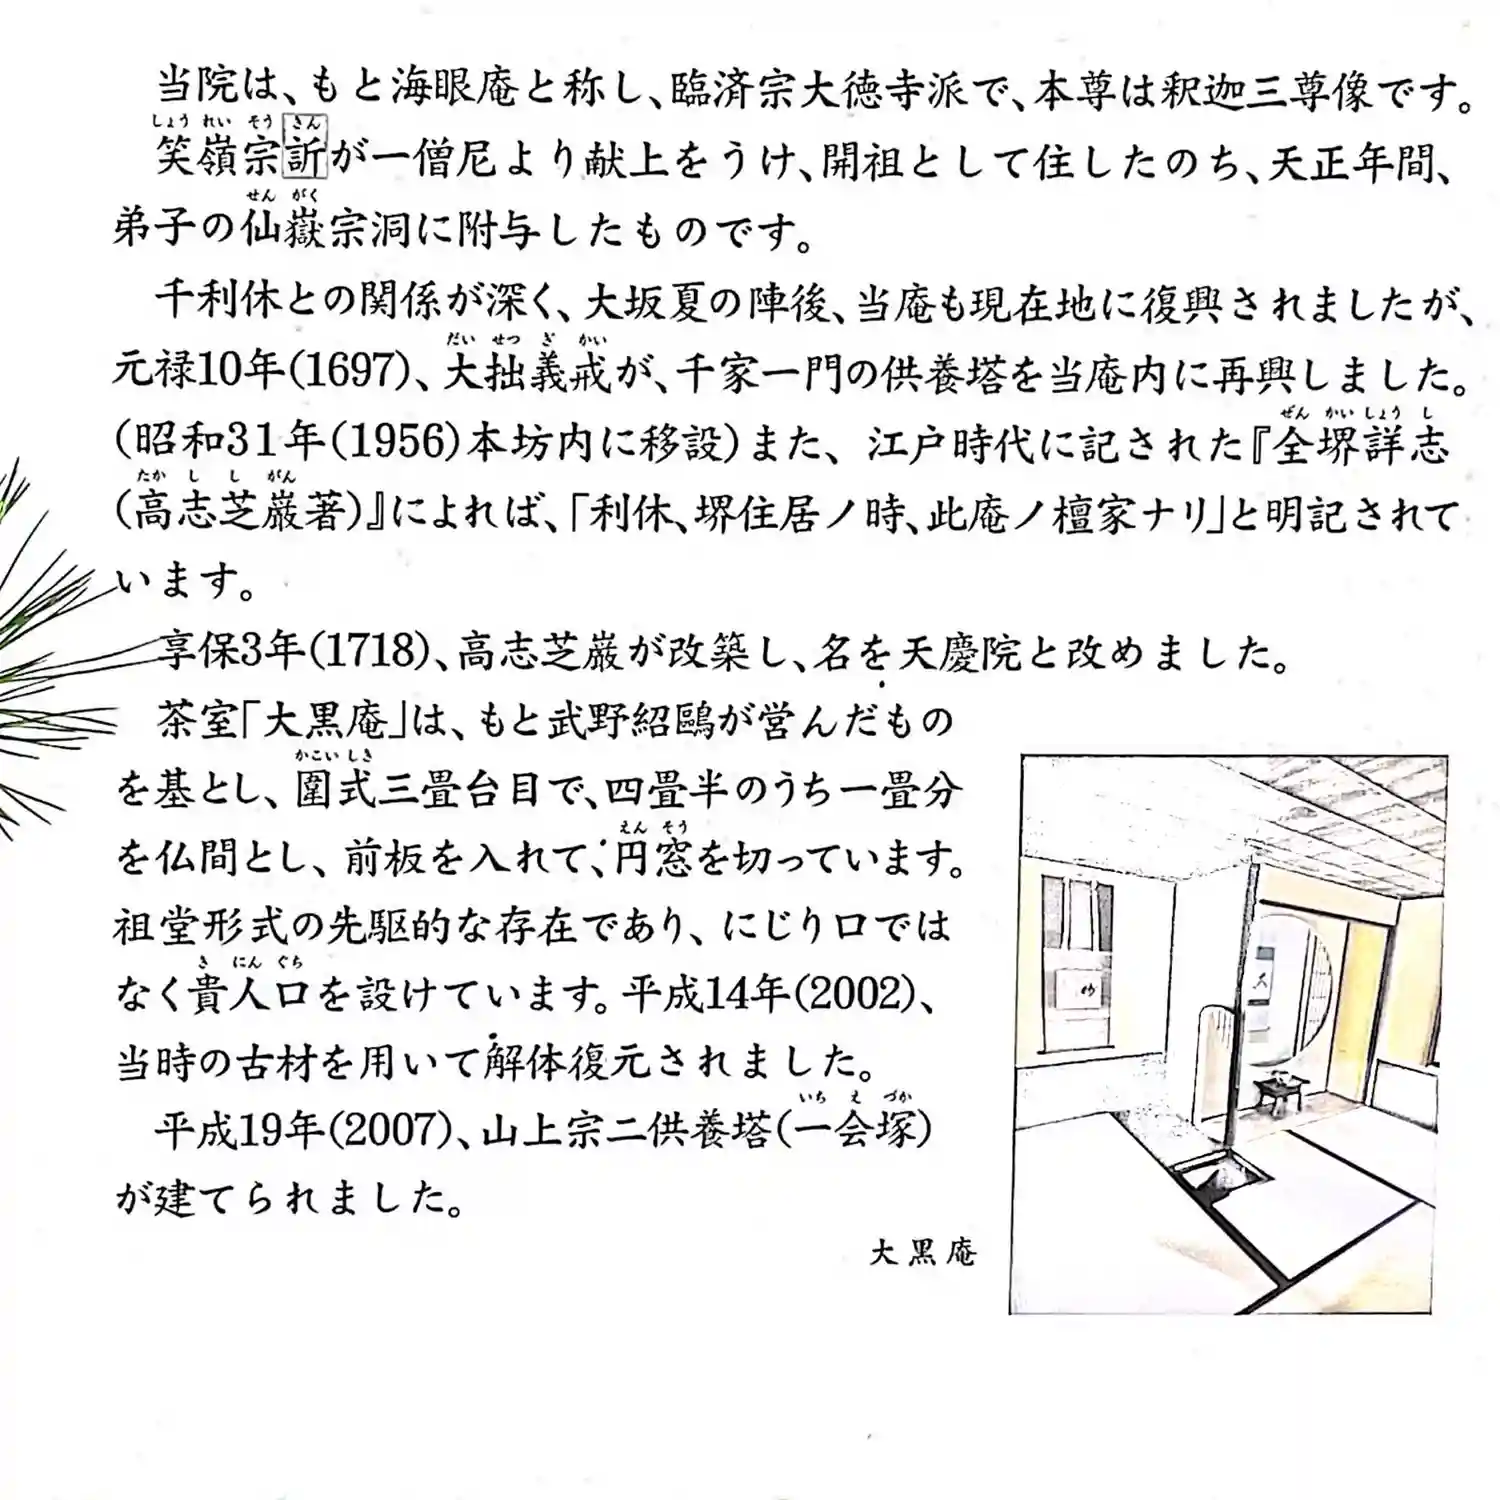 当院は、もと海眼庵と称し、臨済宗大徳寺派で、本尊は釈迦三尊像です。
しょう れい そう きん
笑嶺宗訢が一僧尼より献上をうけ、開祖として住したのち、天正年間、
せん がく
弟子の仙嶽宗洞に附与したものです。
千利休との関係が深く、大坂夏の陣後、当庵も現在地に復興されましたが、
だい せつ ぎ かい
元禄10年(1697)、大拙義戒が、千家一門の供養塔を当庵内に再興しました。
(昭和31年(1956)本坊内に移設)また、江戸時代に記された『全堺詳志
ぜん かい しょう し
(高志芝巌著)』によれば、「利休、堺住居ノ時、此庵ノ檀家ナリ」と明記されて
たか し し がん
います。
享保3年(1718)、高志芝巌が改築し、名を天慶院と改めました。
茶室「大黒庵」は、もと武野紹鷗が営んだもの
かこい しき
を基とし、囲式三畳台目で、四畳半のうち一畳分
えん そう
を仏間とし、前板を入れて、円窓を切っています。
祖堂形式の先駆的な存在であり、にじり口では
き にん ぐち
なく貴人口を設けています。平成14年(2002)、
当時の古材を用いて解体復元されました。
いち え づか
平成19年(2007)、山上宗二供養塔(一会塚)
が建てられました。
大黒庵